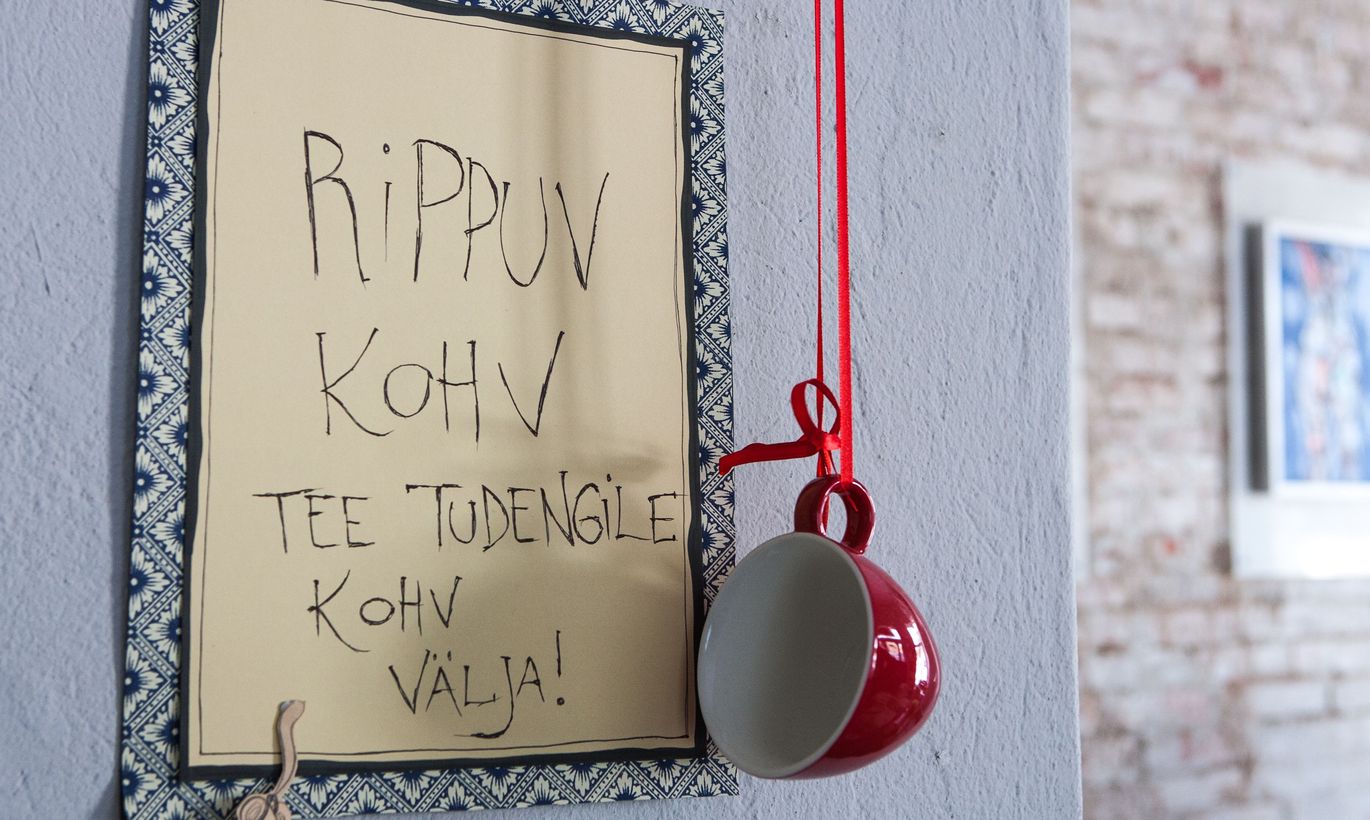 RIPPUV
KOHV
TEE TUDENGILE
KOHV
VÄLJA!